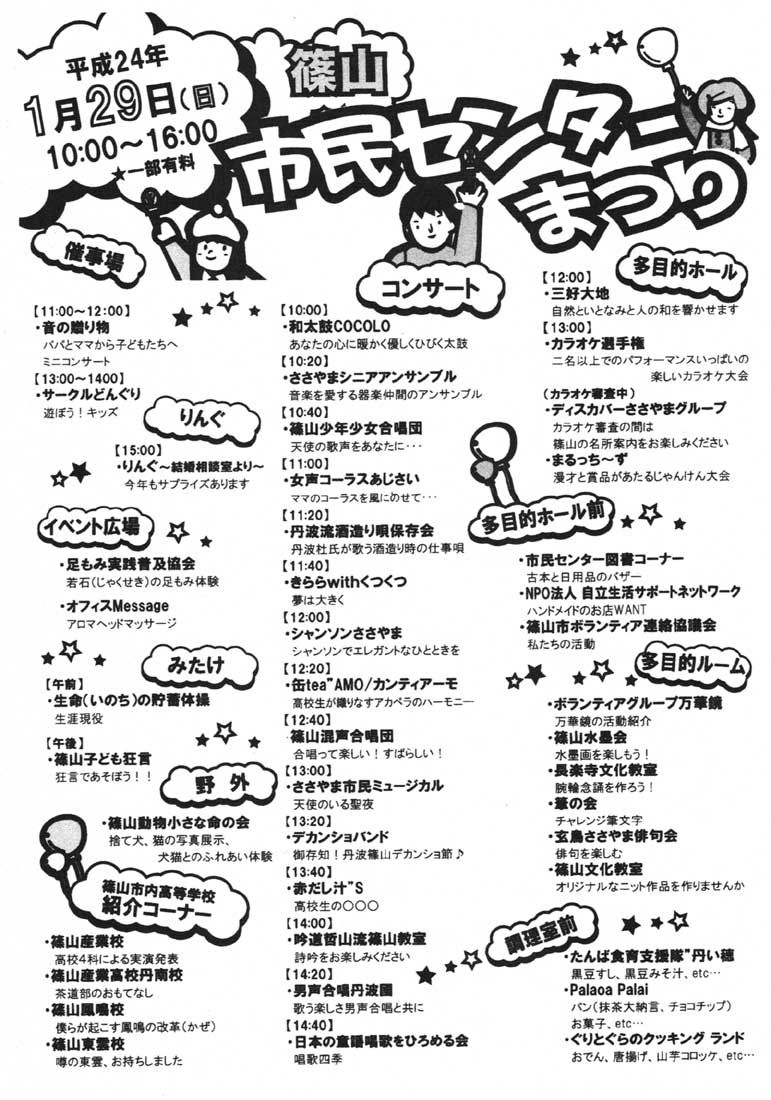 平成24年
1月29日(日)
10:00～16:00
★一部有料
篠山
市民センター
まつり
催事場
【11:00～12:00】
・音の贈り物
パパとママから子どもたちへ
ミニコンサート
【13:00～1400】
・サークルどんぐり
遊ぼう！キッズ
りんぐ
【15:00】
・りんぐ～結婚相談室より～
今年もサプライズあります
イベント広場
・足もみ実践普及協会
若石(じゃくせき)の足もみ体験
・オフィスMessage
アロマヘッドマッサージ
みたけ
【午前】
・生命(いのち)の貯蓄体操
生涯現役
【午後】
・篠山子ども狂言
狂言であそぼう！！
野外
・篠山動物小さな命の会
捨て犬、猫の写真展示、
犬猫とのふれあい体験
篠山市内高等学校
紹介コーナー
・篠山産業校
高校4科による実演発表
・篠山産業高校丹南校
茶道部のおもてなし
・篠山鳳鳴校
僕らが起こす鳳鳴の改革(かぜ)
・篠山東雲校
噂の東雲、お持ちしました
コンサート
【10:00】
・和太鼓COCOLO
あなたの心に暖かく優しくひびく太鼓
【10:20】
・ささやまシニアアンサンブル
音楽を愛する器楽仲間のアンサンブル
【10:40】
・篠山少年少女合唱団
天使の歌声をあなたに･･･
【11:00】
・女声コーラスあじさい
ママのコーラスを風にのせて･･･
【11:20】
・丹波流酒造り唄保存会
丹波杜氏が歌う酒造り時の仕事唄
【11:40】
・きららwithくつくつ
夢は大きく
【12:00】
・シャンソンささやま
シャンソンでエレガントなひとときを
【12:20】
・缶tea"AMO/カンティアーモ
高校生が織りなすアカペラのハーモニー
【12:40】
篠山混声合唱団
合唱って楽しい！すばらしい！
【13:00】
・ささやま市民ミュージカル
天使のいる聖夜
【13:20】
・デカンショバンド
御存知！丹波篠山デカンショ節♪
【13:40】
・赤だし汁"S
高校生の○○○
【14:00】
・吟道哲山流篠山教室
詩吟をお楽しみください
【14:20】
・男声合唱丹波團
歌う楽しさ男声合唱と共に
【14:40】
・日本の童謡唱歌をひろめる会
唱歌四季
多目的ホール
【12:00】
・三好大地
自然といとなみと人の和を響かせます
【13:00】
・カラオケ選手権
二名以上でのパフォーマンスいっぱいの
楽しいカラオケ大会
(カラオケ審査中)
・ディスカバーささやまグループ
カラオケ審査の間は
篠山の名所案内をお楽しみください
・まるっち～ず
漫才と賞品があたるじゃんけん大会
多目的ホール前
・市民センター図書コーナー
古本と日用品のバザー
・NPO法人 自立生活サポートネットワーク
ハンドメイドのお店WANT
・篠山市ボランティア連絡協議会
私たちの活動
多目的ルーム
・ボランティアグループ万華鏡
万華鏡の活動紹介
・篠山水墨会
水墨画を楽しもう！
・長楽寺文化教室
腕輪念誦を作ろう！
・筆の会
チャレンジ筆文字
・玄鳥ささやま俳句会
俳句を楽しむ
・篠山文化教室
オリジナルなニット作品を作りませんか
調理室前
・たんば食育支援隊"丹い穂
黒豆すし、黒豆みそ汁、etc…
・Palaoa Palai
パン(抹茶大納言、チョコチップ)
お菓子、etc…
・ぐりとぐらのクッキング ランド
おでん、唐揚げ、山芋コロッケ、etc…